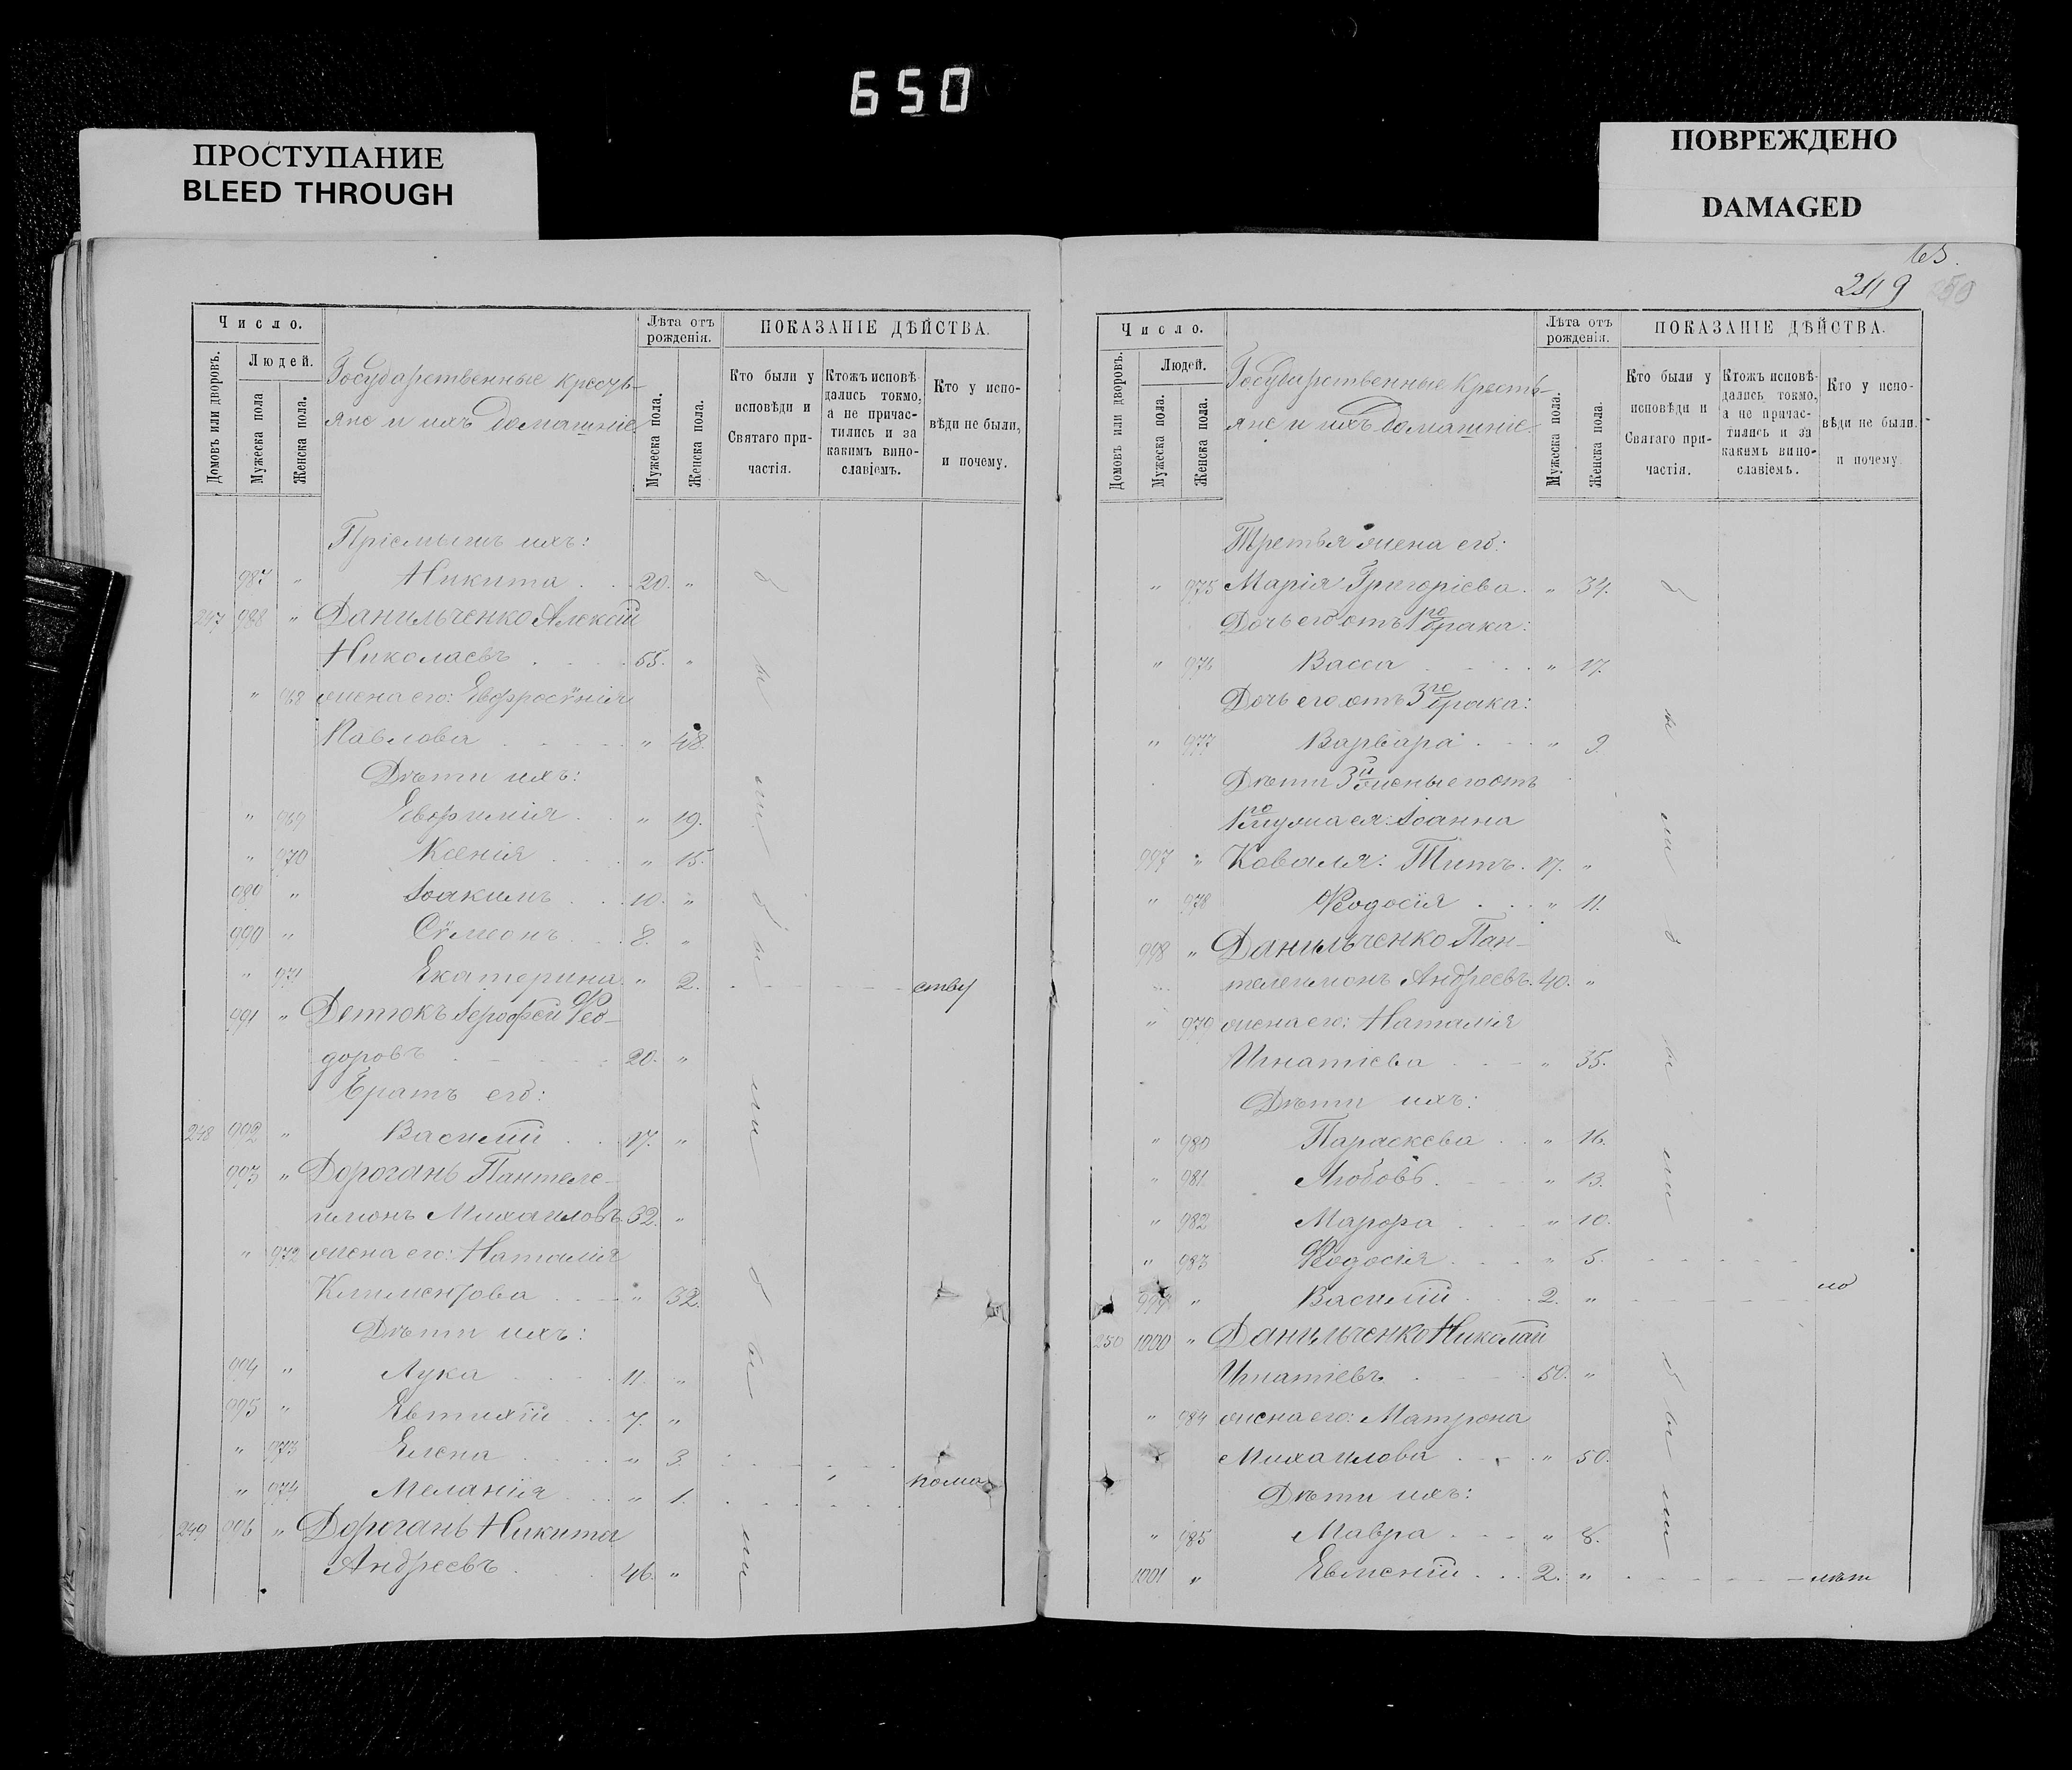 650
ПРОСТУПАНИЕ
BLEED THROUGH
ПОВРЕЖДЕНО
DAMAGED
Число.
Людей.
Домовъ или дворовъ.
Мужеска пола
Женска пола.
Государственные кресть-
яне и ихъ домашніе
Лѣта отъ
рожденія.
Мужеска пола.
Женска пола.
ПОКАЗАНІЕ ДѢЙСТВА.
Кто были у
исповѣди и
Святаго при-
частія.
Ктожъ исповѣ-
дались токмо,
а не причас-
тились и за
какимъ вино-
славіемъ.
Кто у испо-
вѣди не были,
и почему.
Пріемышъ ихъ:
987 " Никита 20. "
247 988 " Данильченко Алексій
Николаевъ 55. "
" 968 жена его: Евфросѵнія
Павлова " 48.
Дѣти ихъ:
" 969 Евфимія " 19.
" 970 Ксенія " 15.
989 " Іоакимъ 10. "
990 " Сѵмеонъ 8. "
" 971 Екатерина " 2. ству
991 " Детюкъ Іерофей Ѳео-
доровъ 20. "
Братъ его:
248 992 " Василій 17. "
993 " Дорогань Пантеле-
имонъ Михаиловъ 32. "
" 972 жена его: Наталія
Климентова " 32.
Дѣти ихъ:
994 " Лука 11. "
995 " Евтихій 7. "
" 973 Елена " 3.
" 974 Меланія " 1. помо
249 996 " Дорогань Никита
Андреевъ 46. "
были были были
249
Число.
Людей.
Домовъ или дворовъ.
Мужеска пола.
Женска пола.
Государственные кресть-
яне и ихъ домашніе
Лѣта отъ
рожденія.
Мужеска пола.
Женска пола.
ПОКАЗАНІЕ ДѢЙСТВА.
Кто были у
исповѣди и
Святаго при-
частія.
Ктожъ исповѣ-
дались токмо,
а не причас-
тились и за
какимъ вино-
славіемъ.
Кто у испо-
вѣди не были.
и почему.
Третья жена его:
" 975 Марія Григоріева. " 34.
Дочь его отъ 1го брака:
" 976 Васса " 17.
Дочь его отъ 3го брака:
" 977 Варвара " 9.
Дѣти 3й жены его отъ
1го мужа ея: Іоанна
997 " Коваля: Титъ. 17. "
" 978 Ѳеодосія " 11.
998 " Данильченко Пан-
телеимонъ Андреевъ. 40. "
" 979 жена его: Наталія
Игнатіева " 35.
Дѣти ихъ:
" 980 Параскева " 16.
" 981 Любовь " 13.
" 982 Марѳа " 10.
" 983 Ѳеодосія " 5.
999 " Василій 2. " мо
250 1000 " Данильченко Николай
Игнатіевъ 50. "
" 984 жена его: Матрона
Михаилова " 50.
Дѣти ихъ:
" 985 Мавра " 8.
1001 " Евмений 2. " лѣт
были были были